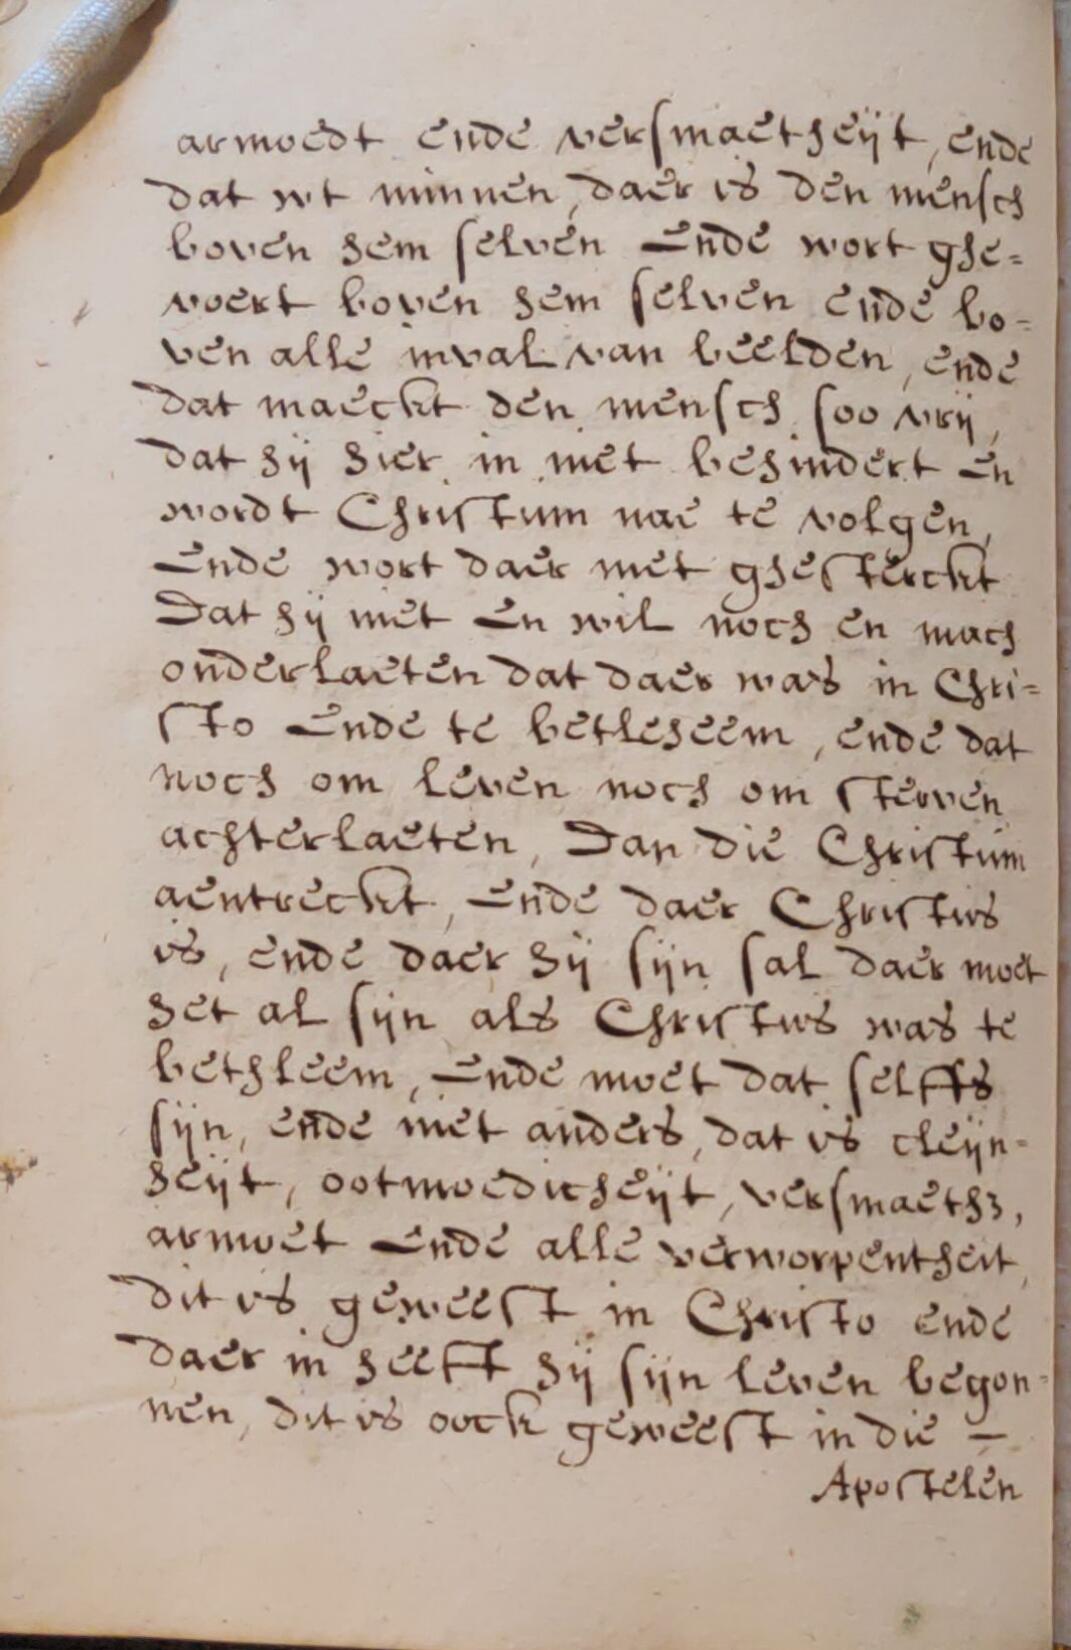 armoedt ende versmaetheijt, ende
dat wt minnen, daer is den mensch
boven hem selven Ende wort ghe=
voert boven hem selven ende bo=
ven alle inval van beelden, ende
dat maeckt den mensch soo vrij,
dat hij hier in niet behindert En
wordt Christum nae te volgen,
Ende wort daer met ghesterckt
Dat hij niet En wil noch en mach
onderlaeten dat daer was in Chri=
sto Ende te betleheem, ende dat
noch om leven noch om sterven
achterlaeten, Dan die Christum
aentreckt, Ende daer Christus
is, ende daer hij sijn sal daer moet
het al sijn als Christus was te
bethleem, Ende moet dat selffs
sijn, ende niet anders, dat is cleijn=
heijt, ootmoedicheijt, versmaeth3,
armoet Ende alle verworpentheit,
dit is geweest in Christo ende
daer in heeft hij sijn leven begon=
nen, dit is oock geweest in die —
Apostelen